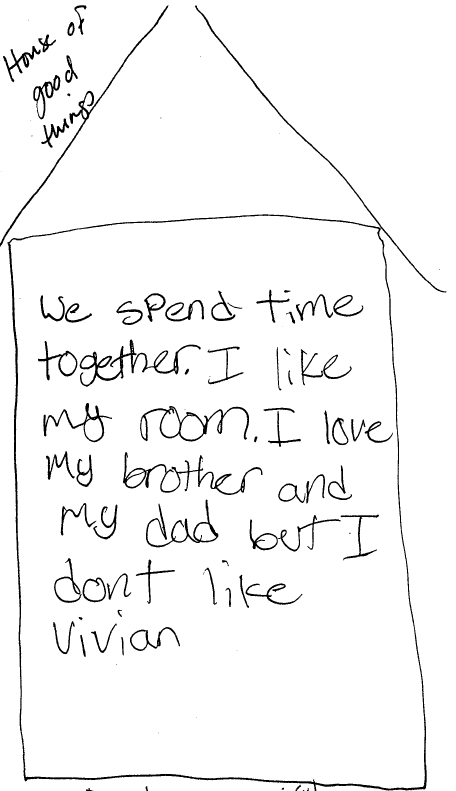 House of
good
things
We spend time
together. I like
my room. I love
My brother and
My dad but I
dont like
Vivian